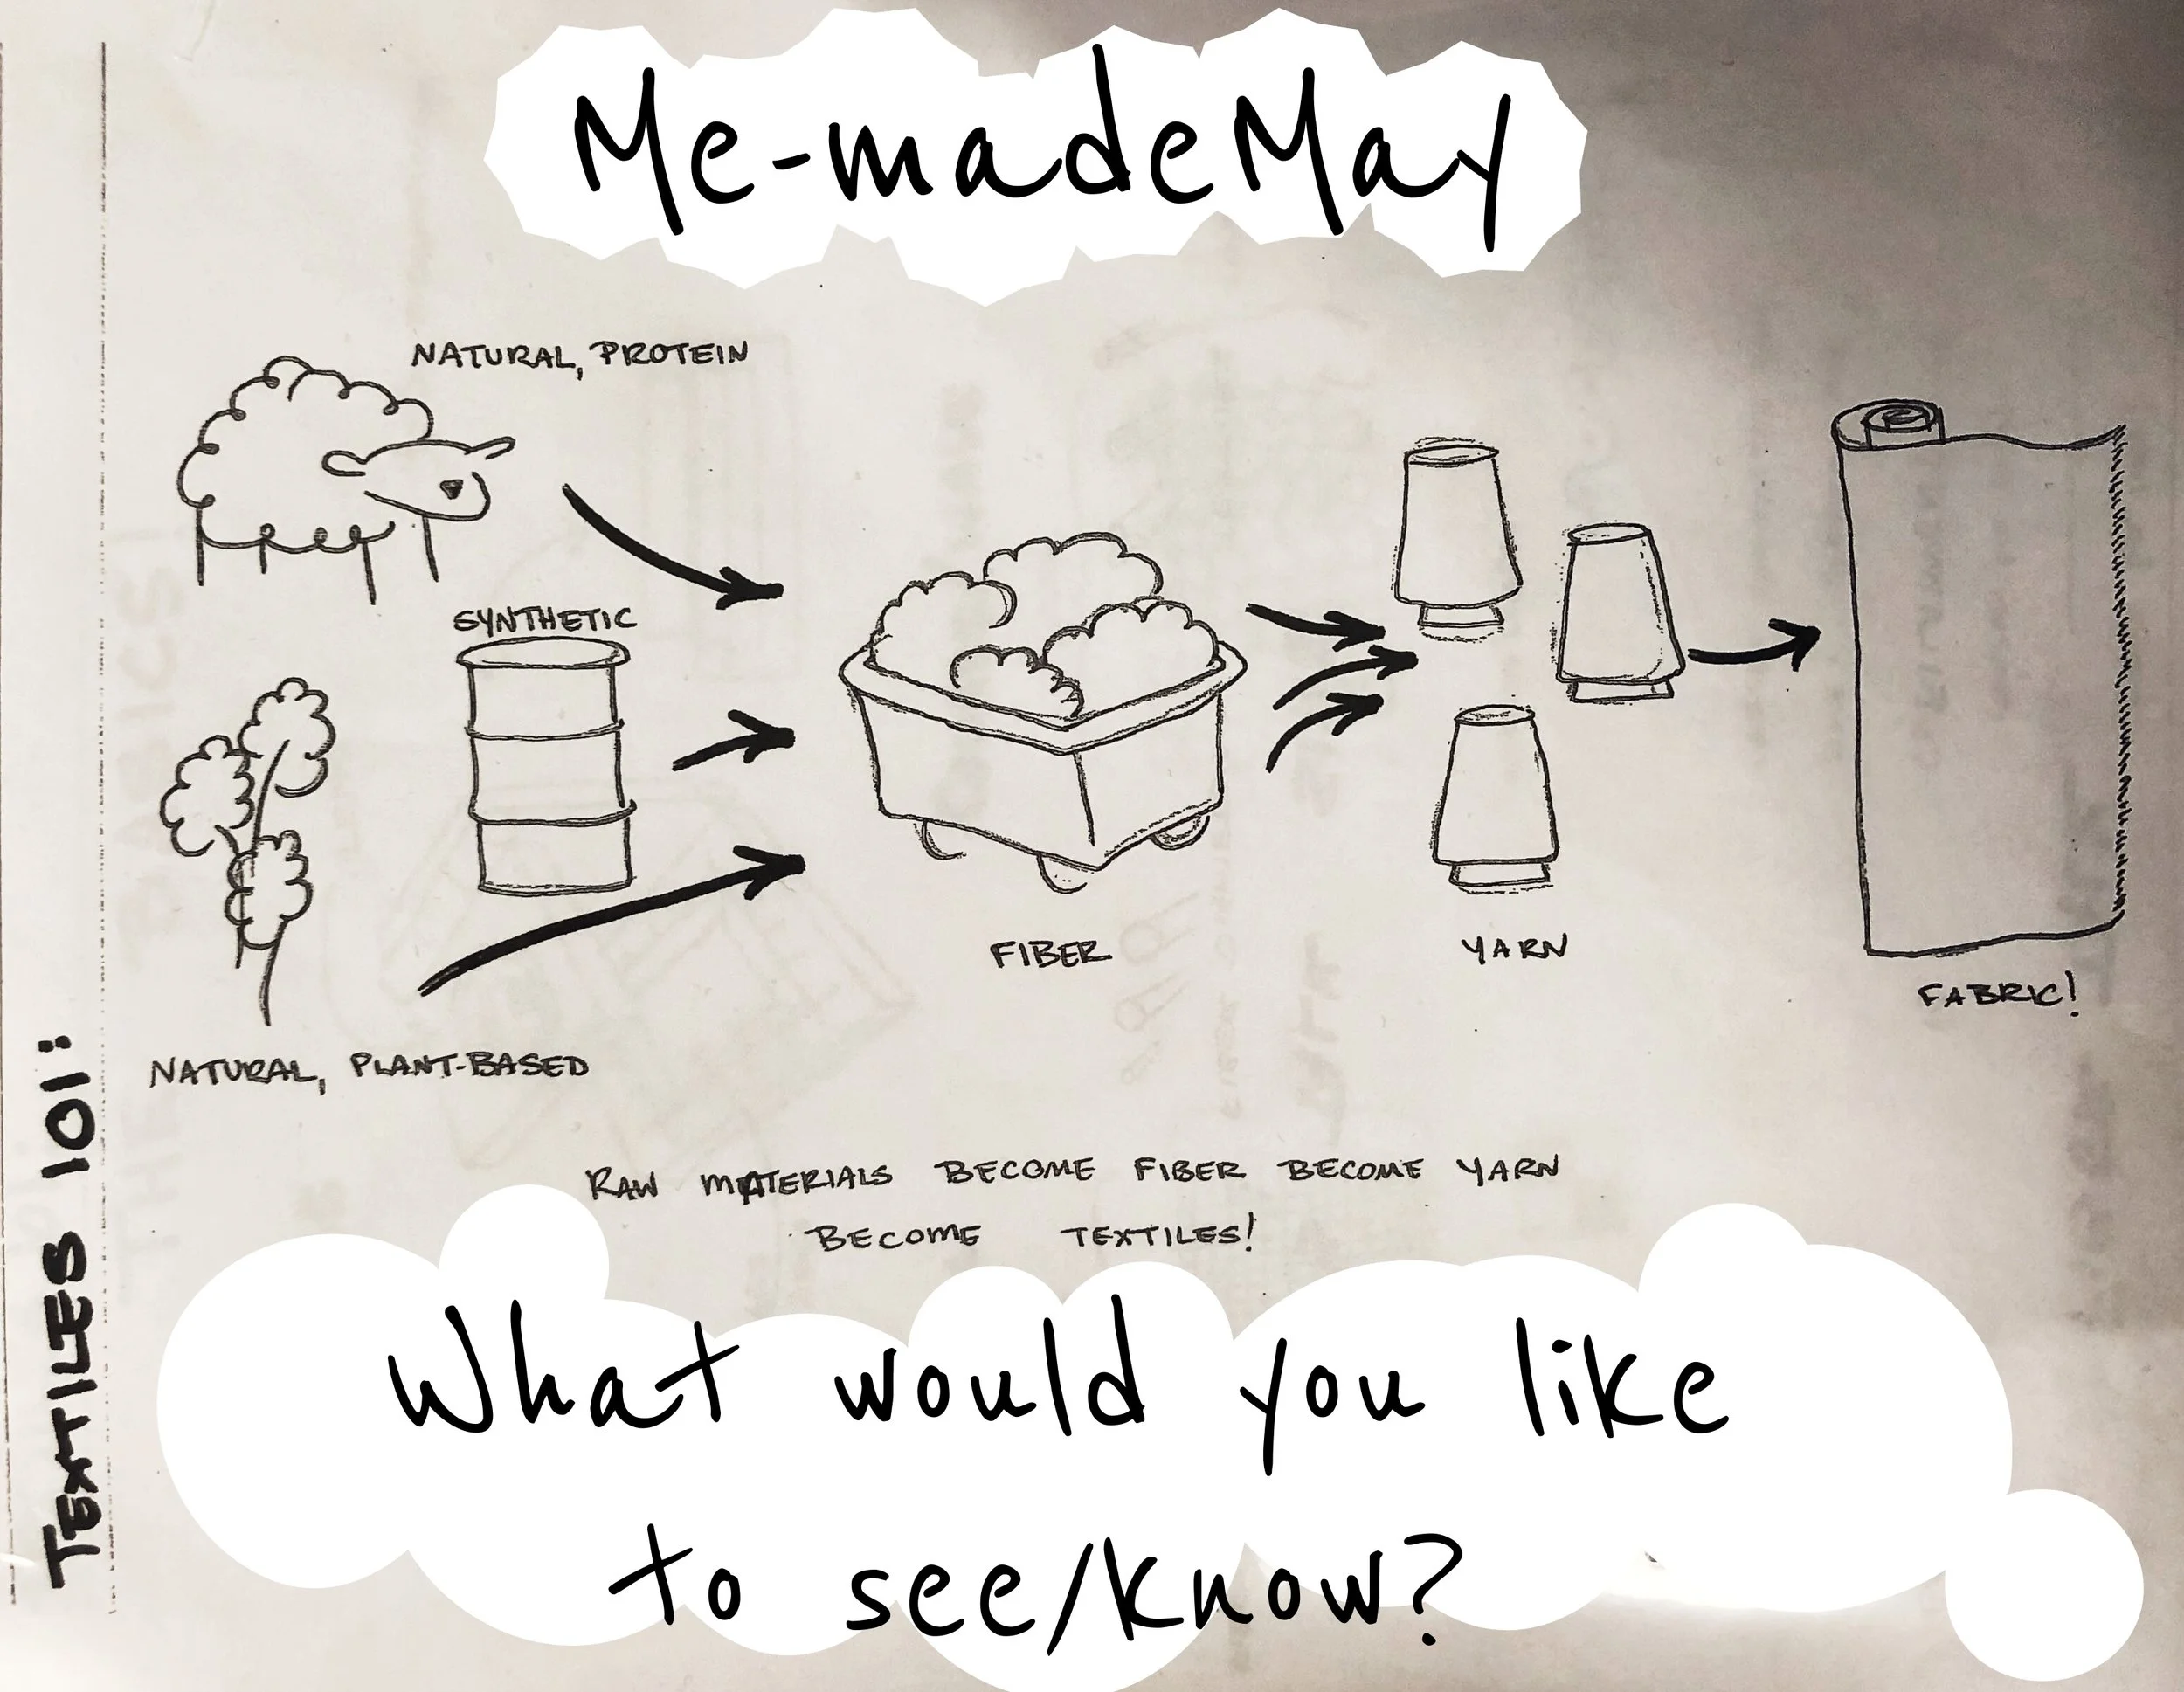 Me-madeMay
NATURAL, PROTEIN
SYNTHETIC
NATURAL, PLANT-BASED
FIBER
YARN
FABRIC!
RAW MATERIALS BECOME FIBER BECOME YARN
BECOME TEXTILES!
TEXTILES 101:
What would you like
to see/know?